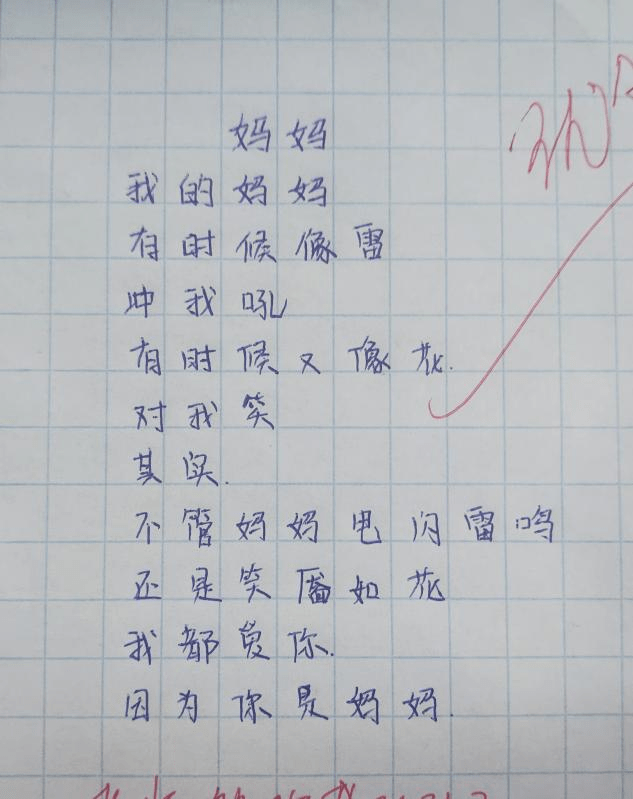 妈妈
我的妈妈
有时候像雷
冲我吼
有时候又像花.
对我笑
其实.
不管妈妈电闪雷鸣
还是笑靥如花
我都爱你.
因为你是妈妈.